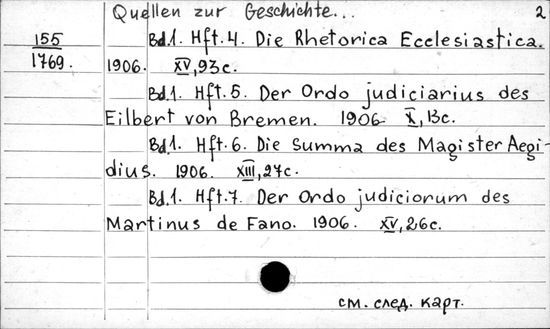 Quellen zur Geschichte... 2
155
1769.
Bd.1. Hft.4. Die Rhetorica Ecclesiastica.
1906. XV, 93c.
Bd.1. Hft.5. Der Ordo judiciarius des
Eilbert von Bremen. 1906. X, 13c.
Bd.1. Hft.6. Die Summa des Magister Aegi-
dius. 1906. XIII, 27c.
Bd.1. Hft.7. Der Ordo judiciorum des
Martinus de Fano. 1906. XV, 26c.
см. след. карт.